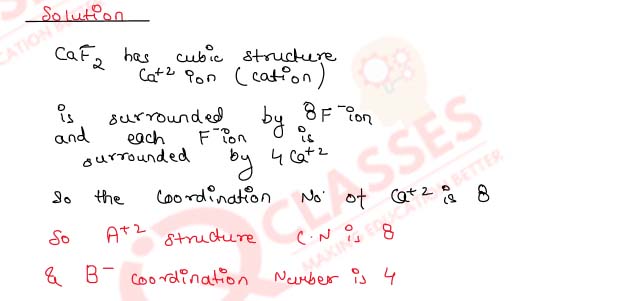 Solution
CaF2 has cubic structure
Ca+2 ion (cation)
is surrounded by 8F- ion
and each F- ion is
surrounded by 4 Ca+2
So the coordination No. of Ca+2 is 8
So A+2 structure C.N is 8
& B- coordination Number is 4
CLASSES
MAKING EDUCATION BETTER